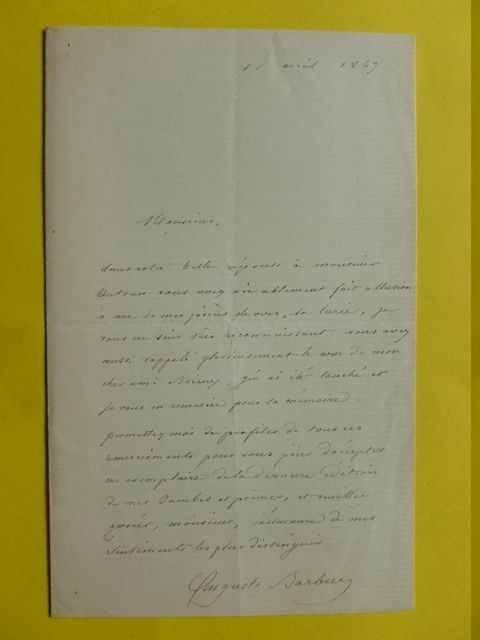 11 avril 1869
Monsieur,
dans votre belle réponse à monsieur
Autran vous avez aimablement fait allusion
à une de mes pièces de vers, la Curée, je
vous en suis très reconnaissant. vous avez
aussi rappelé glorieusement le nom de mon
cher ami Brizeux. j'en ai été touché et
je vous en remercie pour sa mémoire.
permettez moi de profiter de tous ces
remerciements pour vous prier d'accepter
un exemplaire de la dernière édition
de mes Iambes et poèmes, et veuillez
agréer, monsieur, l'assurance de mes
sentiments les plus distingués
Auguste Barbier